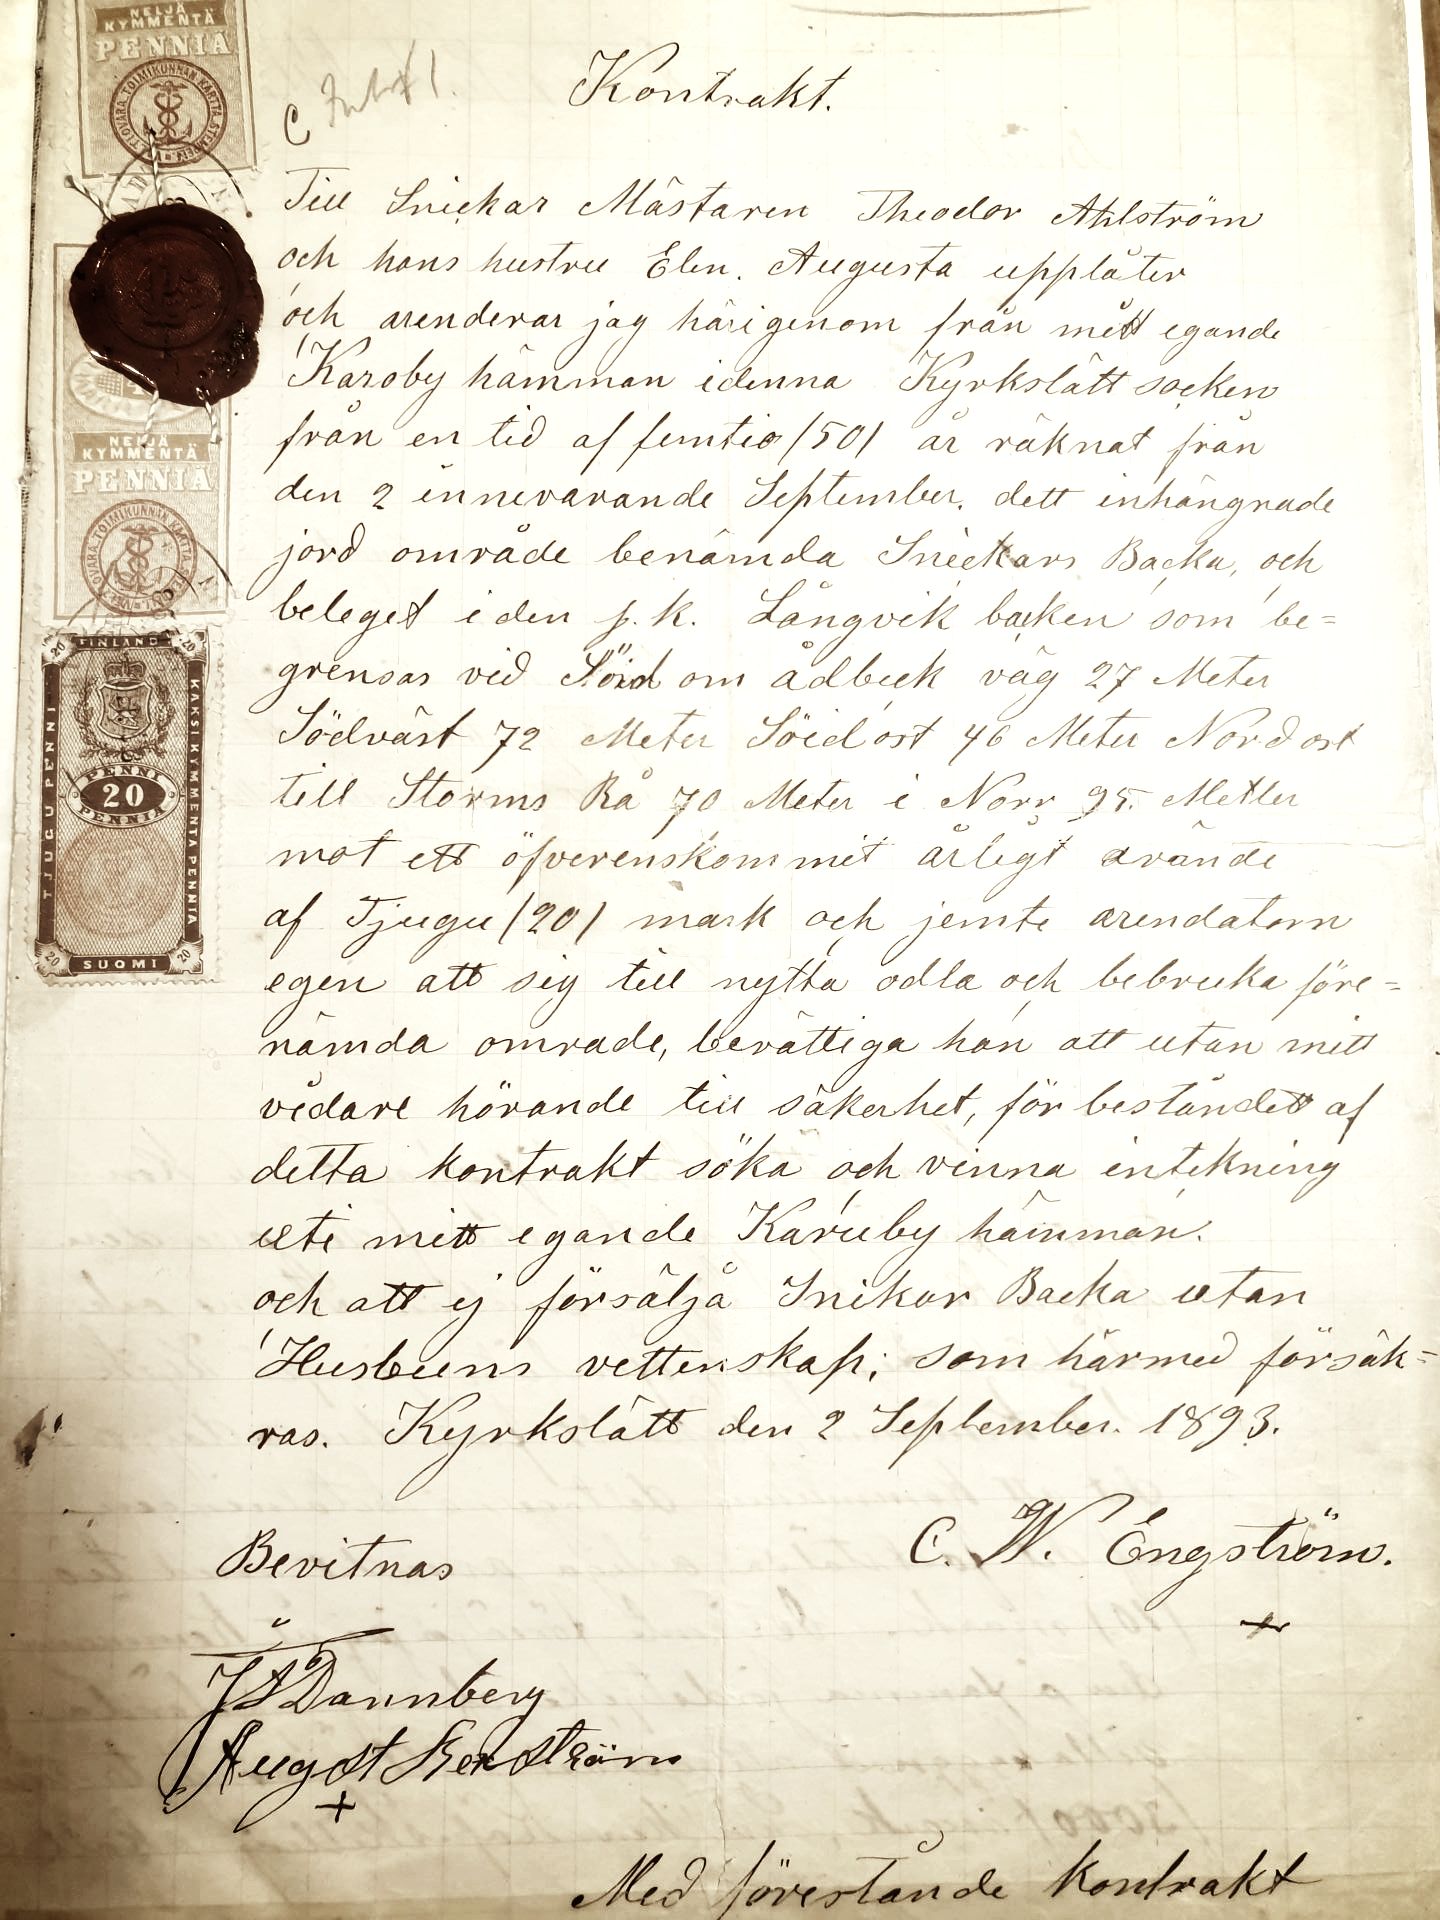 NELJÄ
KYMMENTÄ
PENNIÄ
C
Kontrakt.
Till Snickar Mästaren Theodor Ahlström
och hans hustru Elin. Augusta upplåter
och arenderar jag härigenom från mitt egande
Karoby hämman idenna Kyrkslätt socken
från en tid af femtio /50/ år räknat från
den 2 innevarande September. dett inhängnade
jord område benämda Snickars Backa, och
beleget i den s.k. Långvik backen som be=
grensas vid Söid om ådbeck väg 27 Meter
Södväst 72 Meter Söidost 46 Meter Nordost
till Storms Rå 70 Meter i Norr 95. Metler
mot ett öfverenskommit årligt arände
af Tjugu /20/ mark och jemte arendatorn
egen att sig till nytta odla och bebruka före=
nämda område, berättiga han att utan mitt
vidare hörande till säkerhet, för beståndett af
detta kontrakt söka och vinna intekning
uti mitt egande Karuby hämman.
och att ej försälja Snikar Backa utan
Husbuns vettenskap; som härmed försäk=
ras. Kyrkslätt den 2 September. 1893.
C. W. Engström.
Bevitnas
J A Dannberg
August Renström
Med förestånde kontrakt
NELJÄ
KYMMENTÄ
PENNIÄ
FINLAND
20 20
TJUGU PENNI
KAKSIKYMMENTÄ PENNIÄ
PENNI
20
PENNIÄ
20 20
SUOMI